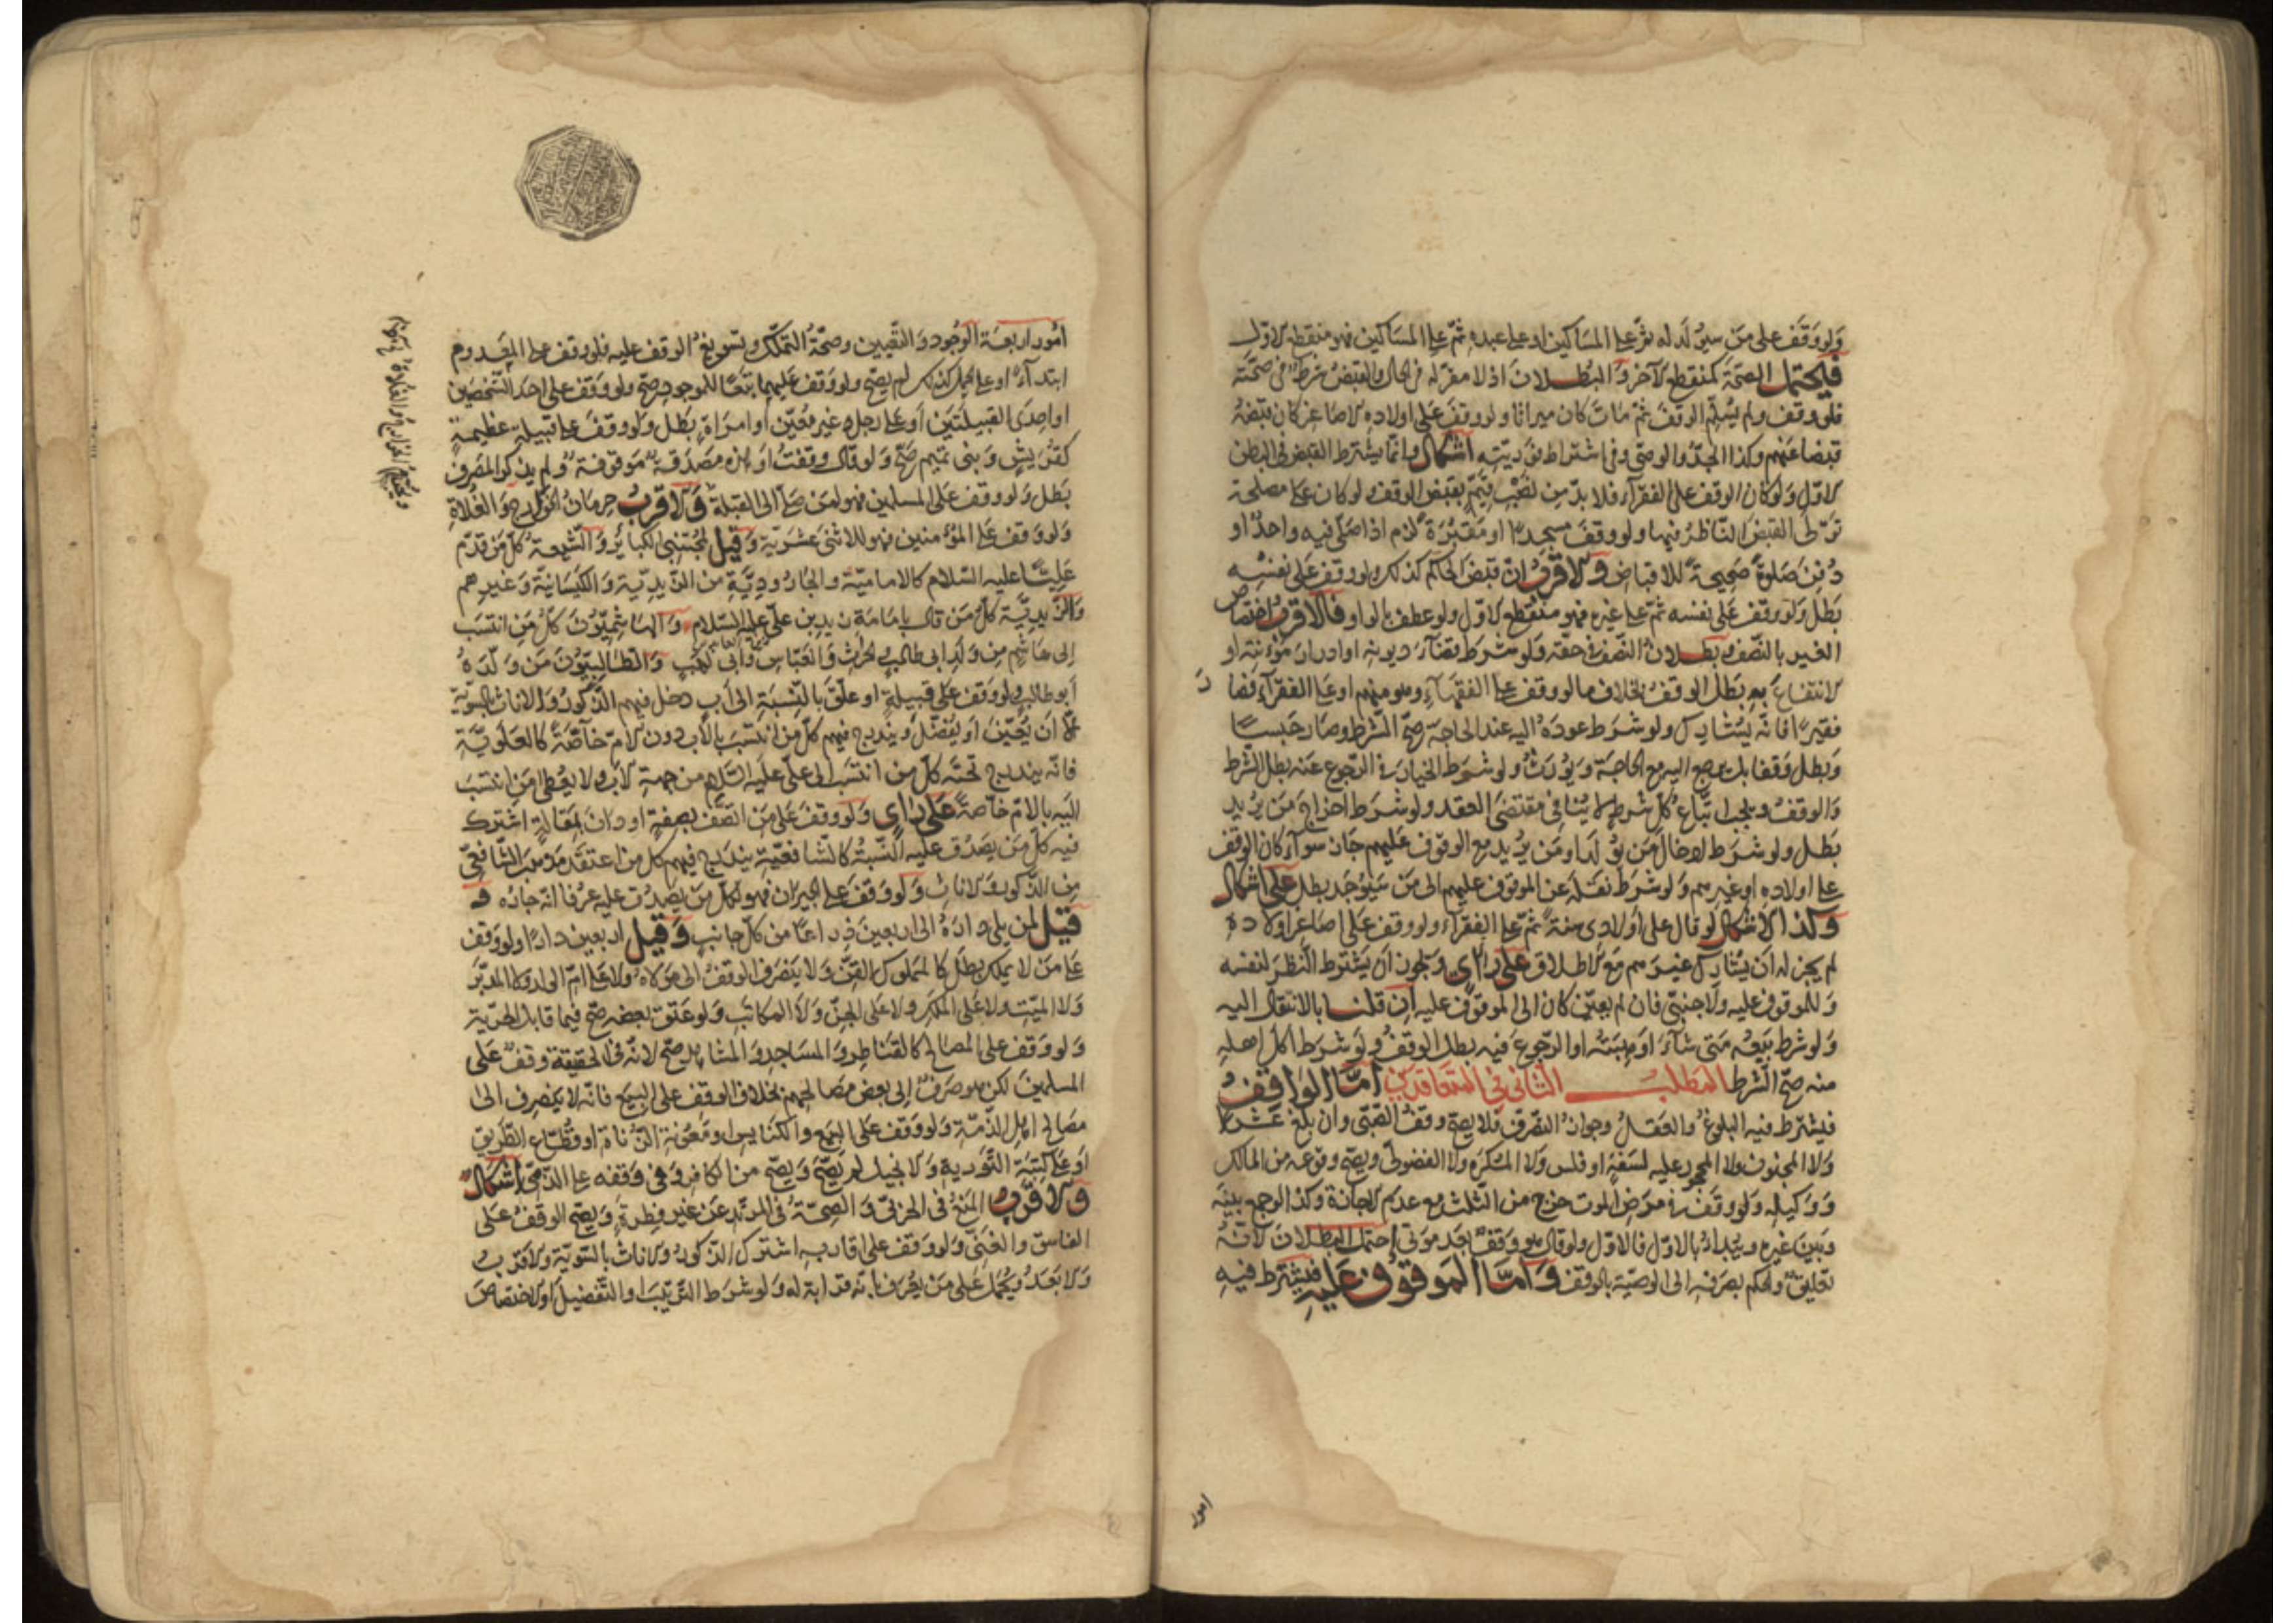 ولو وقف على من سيولد له ثم على المساكين او على عبده ثم على المساكين فهو منقطع الاول
فيحتمل الصحة كمنقطع الاخر والبطلان اذ لا مقر له في الحال والقبض شرط في صحته
فلو وقف ولم يسلم الوقف ثم مات كان ميراثا ولو وقف على اولاده الاصاغر كان قبضه
قبضا عنهم وكذا الجد والوصي وفي اشتراط فوريته اشكال وانما يشترط القبض في البطن
الاول ولو كان الوقف على الفقراء فلا بد من نصب قيم يقبض الوقف ولو كان على مصلحة
تولى القبض الناظر فيها ولو وقف مسجدا او مقبرة لزم اذا صلى فيه واحد او
دفن صلوة صحيحة للاقباض والاقرب ان قبض الحاكم كذلك ولو وقف على نفسه
بطل ولو وقف على نفسه ثم على غيره فهو منقطع الاول ولو عطف بالواو فالاقرب اختصاص
الغير بالنصف وبطلان النصف في حقه ولو شرط قضاء ديونه او ادرار مؤنته او
الانتفاع به بطل الوقف بخلاف ما لو وقف على الفقهاء وهو منهم او على الفقراء فصار
فقيرا فانه يشارك ولو شرط عوده اليه عند الحاجة صح الشرط وصار حبسا
وبطل وقفا بل يرجع اليه مع الحاجة ويورث ولو شرط الخيار في الرجوع عنه بطل الشرط
والوقف ويجب اتباع كل شرط لا ينافي مقتضى العقد ولو شرط اخراج من يريد
بطل ولو شرط ادخال من يولد او من يريد مع الموقوف عليهم جاز سواء كان الوقف
على اولاده او غيرهم ولو شرط نقله عن الموقوف عليهم الى من سيوجد بطل على اشكال
وكذا الاشكال لو قال على اولادي سنة ثم على الفقراء ولو وقف على اصاغر اولاده
لم يجز له ان يشارك غيرهم مع الاطلاق على راى ويجوز ان يشترط النظر لنفسه
وللموقوف عليه ولاجنبي فان لم يعين كان الى الموقوف عليه ان قلنا بالانتقال اليه
ولو شرط بيعه متى شاء او هبته او الرجوع فيه بطل الوقف ولو شرط اكل اهله
منه صح الشرط المطلب الثاني في المتعاقدين اما الواقف
فيشترط فيه البلوغ والعقل وجواز التصرف فلا يصح وقف الصبي وان بلغ عشرا
ولا المجنون ولا المحجور عليه لسفه او فلس ولا المكره ولا الفضولي ويصح وقوعه من المالك
ووكيله ولو وقف في مرض الموت خرج من الثلث مع عدم الاجازة وكذا لو جمع بينه
وبين غيره ويبداء بالاول فالاول ولو قال هو وقف بعد موتي احتمل البطلان لانه
تعليق والحكم بصرفه الى الوصية بالوقف واما الموقوف عليه فيشترط فيه
امور
امور اربعة الوجود والتعيين وصحة التملك وتسويغ الوقف عليه فلو وقف على المعدوم
ابتداء او على الحمل كذلك لم يصح ولو وقف عليهما تبعا للموجود صح ولو وقف على احد الشخصين
او احدى القبيلتين او على رجل غير معين او امراة بطل ولو وقف على قبيلة عظيمة
كقريش وبني تميم صح ولو قال وقفت او هذه صدقة موقوفة ولم يذكر المصرف
بطل ولو وقف على المسلمين فهو لمن صلى الى القبلة والاقرب حرمان الخوارج والغلاة
ولو وقف على المؤمنين فهو للاثنى عشرية وقيل لمجتنبي الكبائر والشيعة كل من قدم
عليا عليه السلام كالامامية والجارودية من الزيدية والكيسانية وغيرهم
والزيدية كل من قال بامامة زيد بن علي عليه السلام والهاشميون كل من انتسب
الى هاشم من ولد ابي طالب والحرث والعباس وابي لهب والطالبيون من ولده
ابو طالب ولو وقف على قبيلة او علق بالنسبة الى اب دخل فيهم الذكور والاناث بالسوية
الا ان يعين او يفضل ويندرج فيهم كل من انتسب بالاب دون الام خاصة كالعلوية
فانه يندرج تحته كل من انتسب الى علي عليه السلام من جهة الاب ولا يعطى من انتسب
اليه بالام خاصة على راى ولو وقف على من اتصف بصفة او دان بمقالة اشترك
فيه كل من يصدق عليه النسبة كالشافعية يندرج فيهم كل من اعتقد مذهب الشافعي
من الذكور والاناث ولو وقف على الجيران فهو لكل من يصدق عليه عرفا انه جاره و
قيل لمن يلي داره الى اربعين ذراعا من كل جانب وقيل اربعين دارا ولو وقف
على من لا يملك بطل كالمملوك القن ولا ينصرف الوقف الى مولاه ولا على ام الولد ولا المدبر
ولا الميت ولا على الملك ولا على الجن ولا المكاتب ولو عتق بعضه صح فيما قابل الحرية
ولو وقف على المصالح كالقناطر والمساجد والمشاهد صح لانه في الحقيقة وقف على
المسلمين لكن هو صرف الى بعض مصالحهم بخلاف الوقف على البيع فانه لا ينصرف الى
مصالح اهل الذمة ولو وقف على البيع والكنايس او معونة الزناة او قطاع الطريق
او على كتبة التورية والانجيل لم يصح ويصح من الكافر وفي وقفه على الذمي اشكال
والاقرب المنع في الحربي والصحة في المرتد عن غير فطرة ويصح الوقف على
الفاسق والغني ولو وقف على اقاربه اشترك الذكور والاناث بالسوية والاقرب
والابعد ويحمل على من يعرف بانه قرابته له ولو شرط الترتيب او التفضيل او الاختصاص